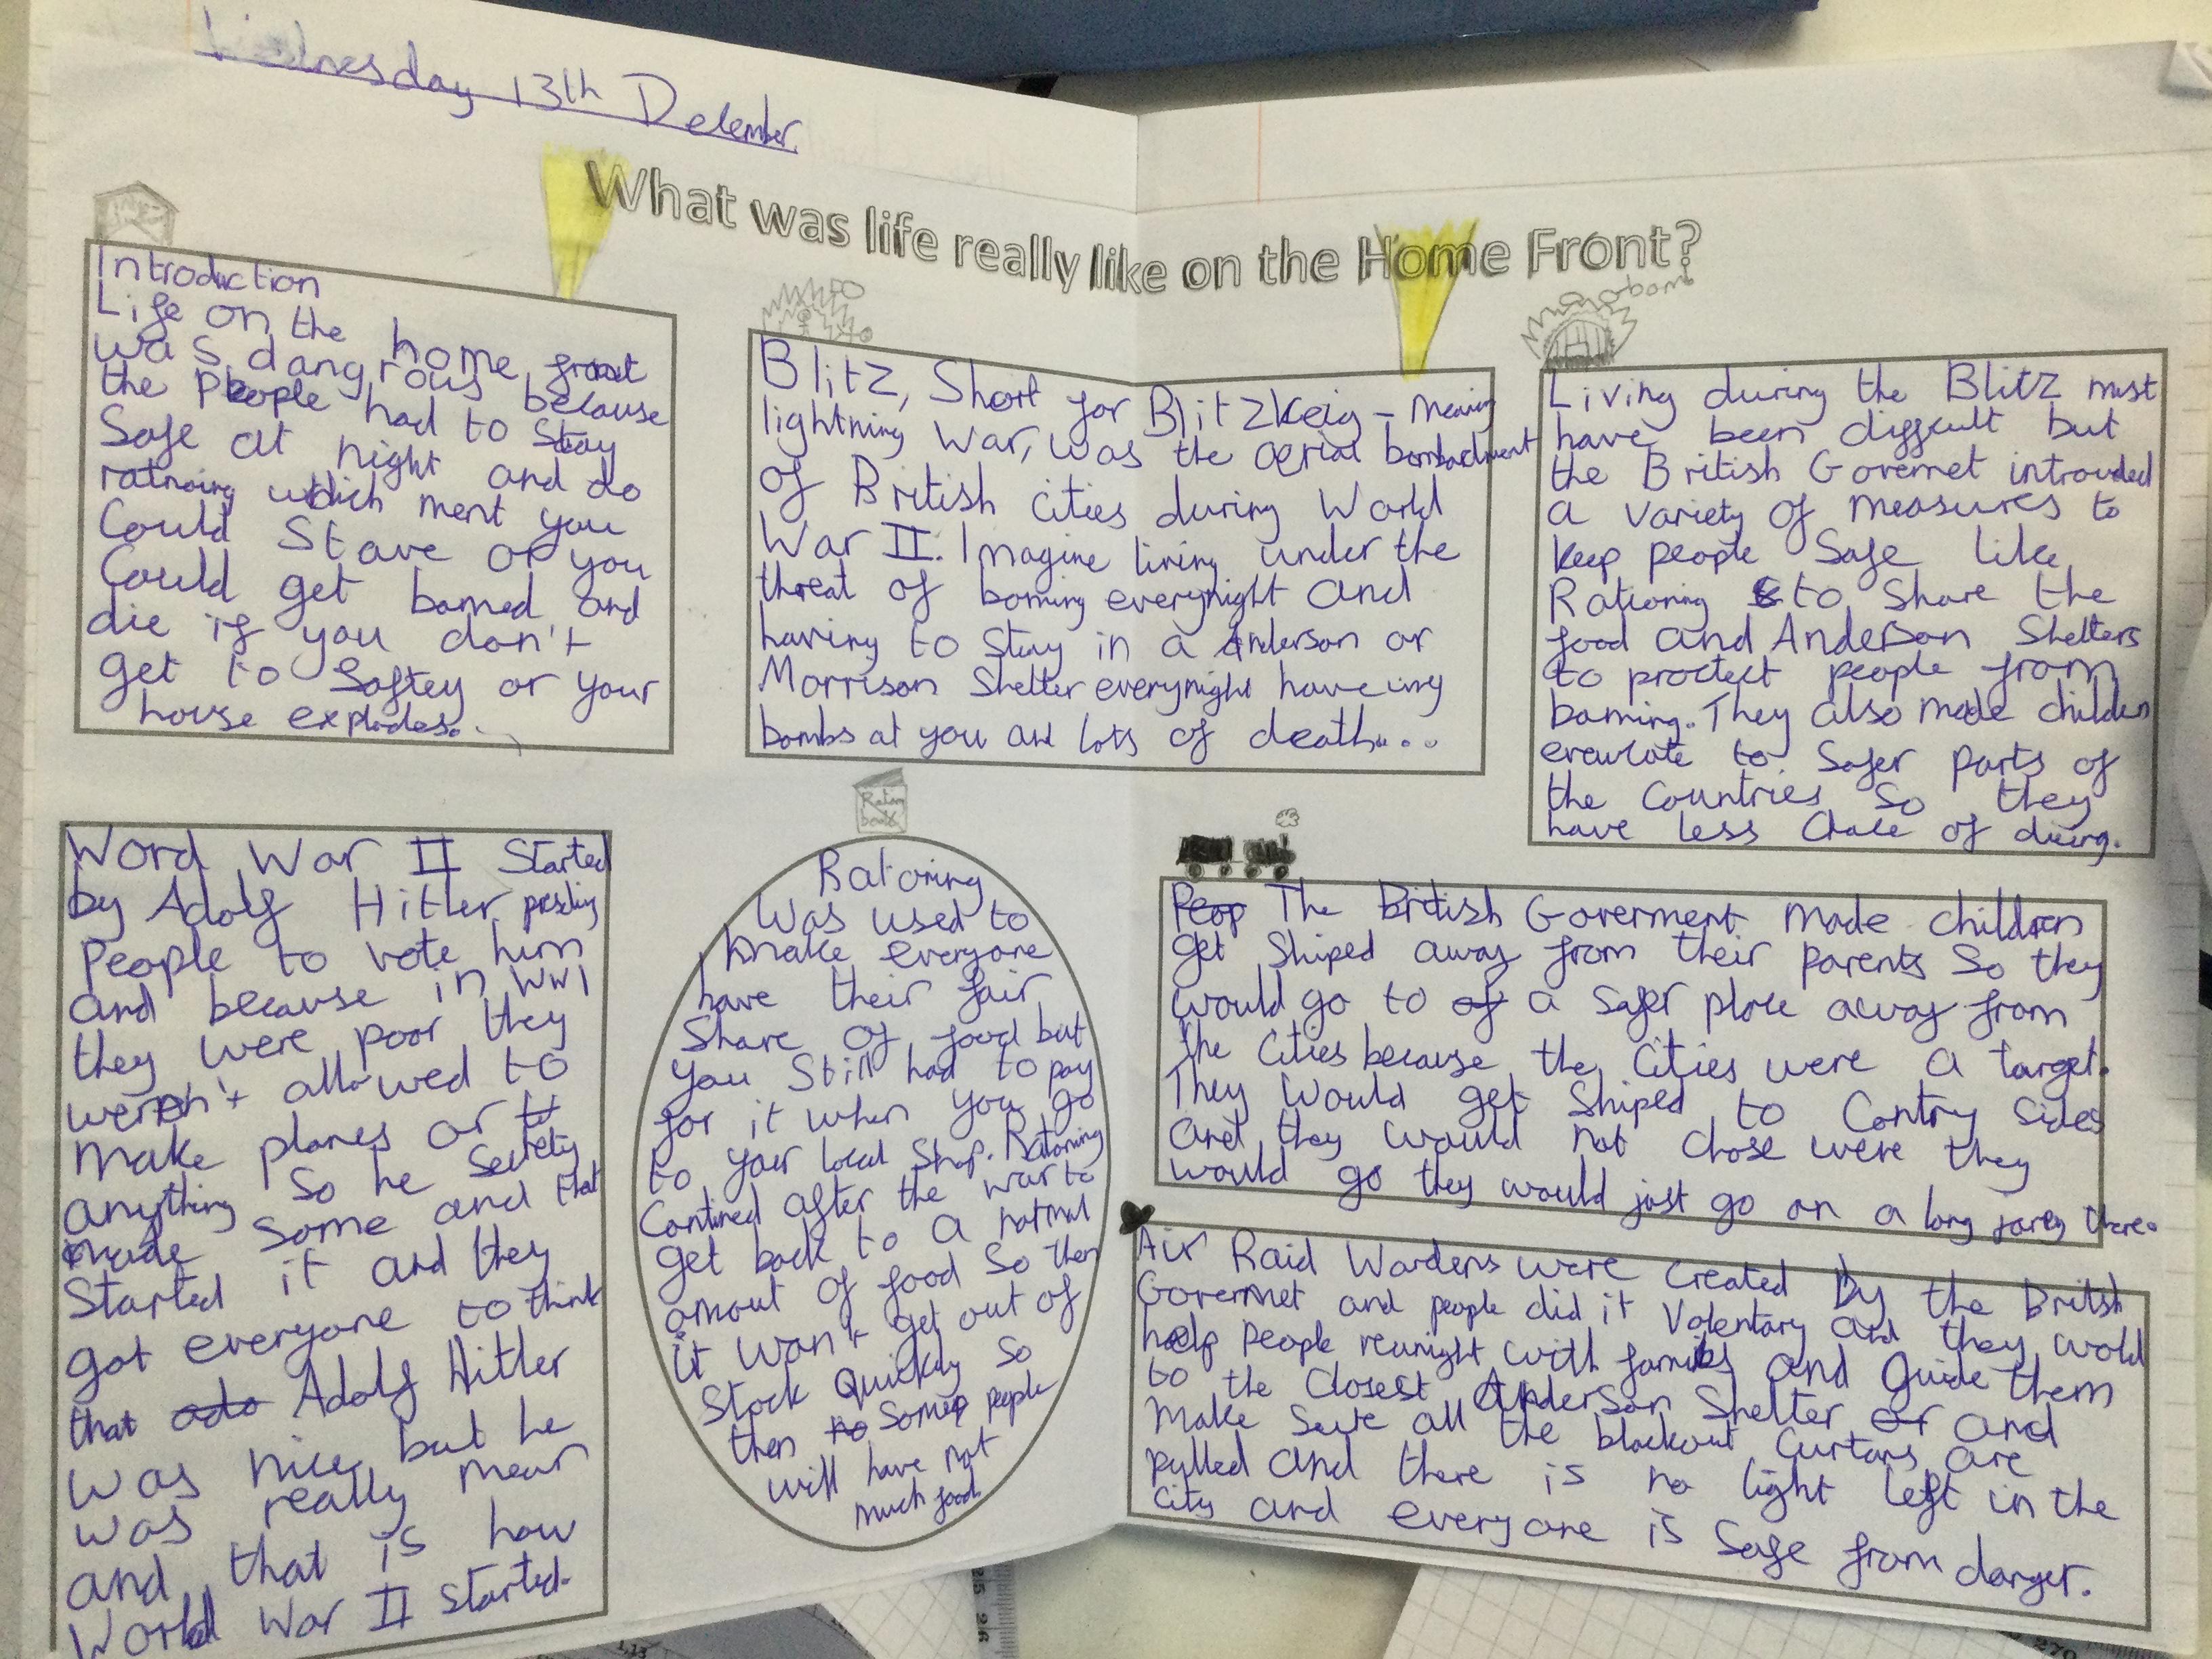 Wednesday 13th December
What was life really like on the Home Front?
Introduction
Life on the home front
was dangrous because
the People had to Stay
Safe at night and do
ratnoing which ment you
Could Stave or you
Could get bomed and
die if you don't
get to Saftey or your
house explodes.
Blitz, Short for Blitzkeig - Meaning
lightning War, was the aerial bombadment
of British cities during World
War II. Imagine living under the
threat of boming everynight and
having to Stay in a Anderson or
Morrison Shelter everynight
bombs at you and lots of death...
bomb
Living during the Blitz must
have been difficult but
the British Govermet introuded
a variety of measures to
keep people Safe like
Rationing to Share the
food and Anderson Shelters
to protect people from
boming. They also made children
evacuate to Safer parts of
the Countries So they
have less Chace of dieing.
Word War II Started
by Adolf Hitler
People to vote him
and because in WW1
they were poor they
weren't allowed to
make planes or
anything So he Secretly
made Some and that
Started it and they
got everyone to think
that ado Adolf Hitler
was nice but he
was really mean
and that is how
World War II Started.
Ration
book
Rationing
Was used to
make everyone
have their fair
Share of food but
you Still had to pay
for it when you go
to your local Shop. Rationing
Contined after the war to
get back to a normal
amout of food So then
it Wan't get out of
Stock Quickly So
then no Some people
will have not
much food.
Peop The British Goverment made children
get Shiped away from their parents So they
would go to of a Safer place away from
the Cities because the Cities were a target.
They Would get Shiped to Contry Sides
and they would not chose were they
would go they would just go on a long jorey there.
Air Raid Wardens were created by the British
Govermet and people did it Volentary and they wold
help people reunight with families and Guide them
to the Closest Anderson Shelter or and
Make Sure all the blackout Curtans are
pulled and there is no light left in the
city and everyone is Safe from danger.